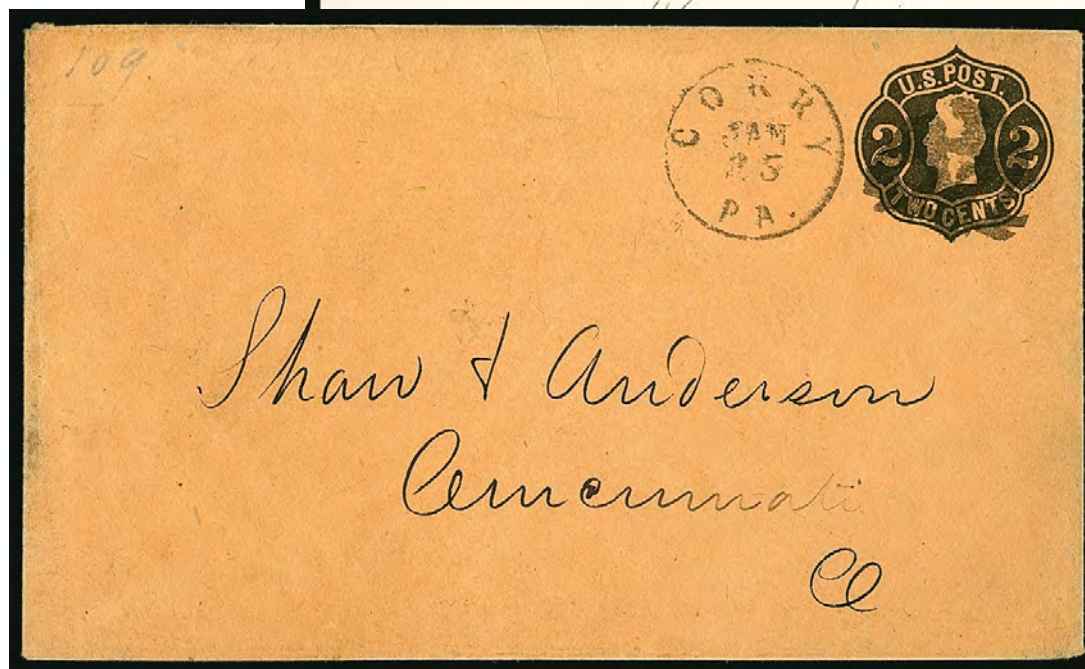 109.
CORRY
JAN
25
PA.
U.S. POST.
2 2
TWO CENTS
Shaw & Anderson
Cincinnati
O